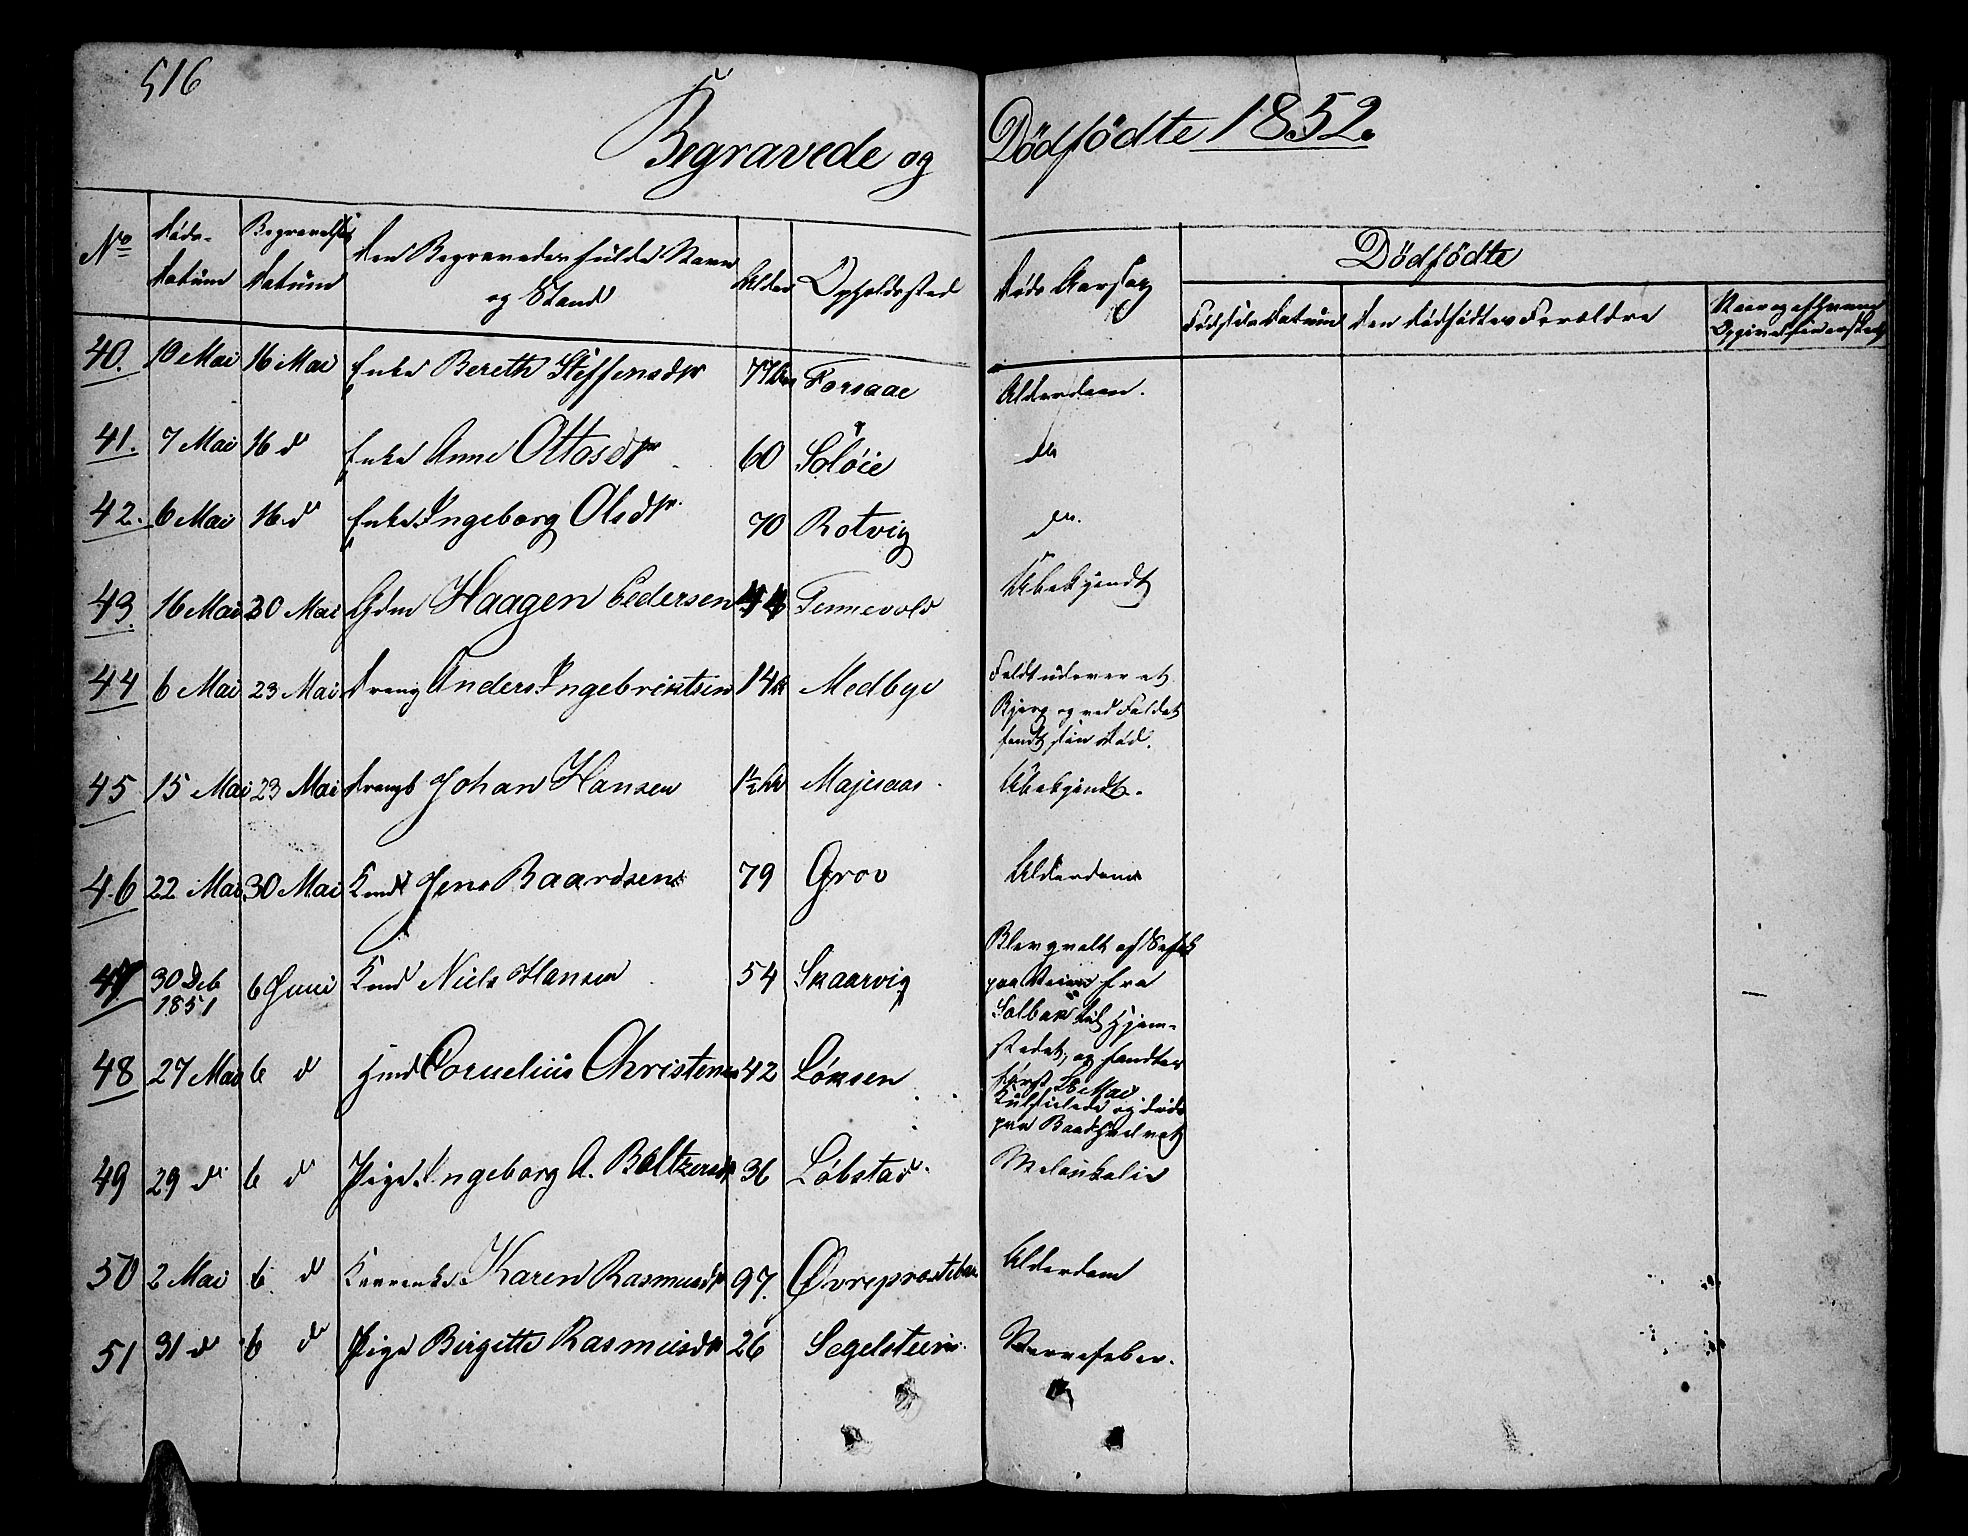 516
Begravede og Dödfödte 1852.
No Døds- Datum Begravelses Datum Den Begravedes fulde Navn og Stand Alder Opholdssted Døds Aarsag Dödfödte
Fødsels Datum Den Dødfødtes Forældre
40. 10 Mai 16 Mai Enke Bereth Steffensdtr 77 Aar Forsaae Alderdom.
41. 7 Mai 16 do Enke Anne Ottosdtr 60 Soløie do
42. 6 Mai 16 do Enke Ingeborg Olsdtr. 70 Rotvig do.
43. 16 Mai 20 Mai Gdm Haagen Pedersen 44 Tennevold Ubekjendt
44 6 Mai 23 Mai Dreng Anders Ingebriktsen 14 Medbye Faldt udover et
Bjerg og ved Faldet
fandt sin Død.
45 15 Mai 23 Mai Drengb Johan Hansen 1½ Aar Majesaas. Ubekjendt.
46 22 Mai 30 Mai Kaard Jens Baardsen 79 Grov Alderdom
47 30 Deb 1851 6 Juni Niels Hansen 54 Skaarvig Blev qvalt af Snefok
paa Veien fra
Solbak til Hjem-
stedet, og fandtes
først 28 Mai
48 27 Mai 6 do Gmd Cornelius Christensen 42 Løksen Kulseilede og døde
paa Baadhvelvet
49 29 do 6 do Pige Ingeborg A. Boltzersdtr 36 Løbstad. Melankolie
50 2 Mai 6 do Karen Rasmusdtr 97. Øvreprestebak Alderdom
51 31 do 6 do Pige Birgitte Rasmusdtr 26 Segelsteen. Nervefeber.